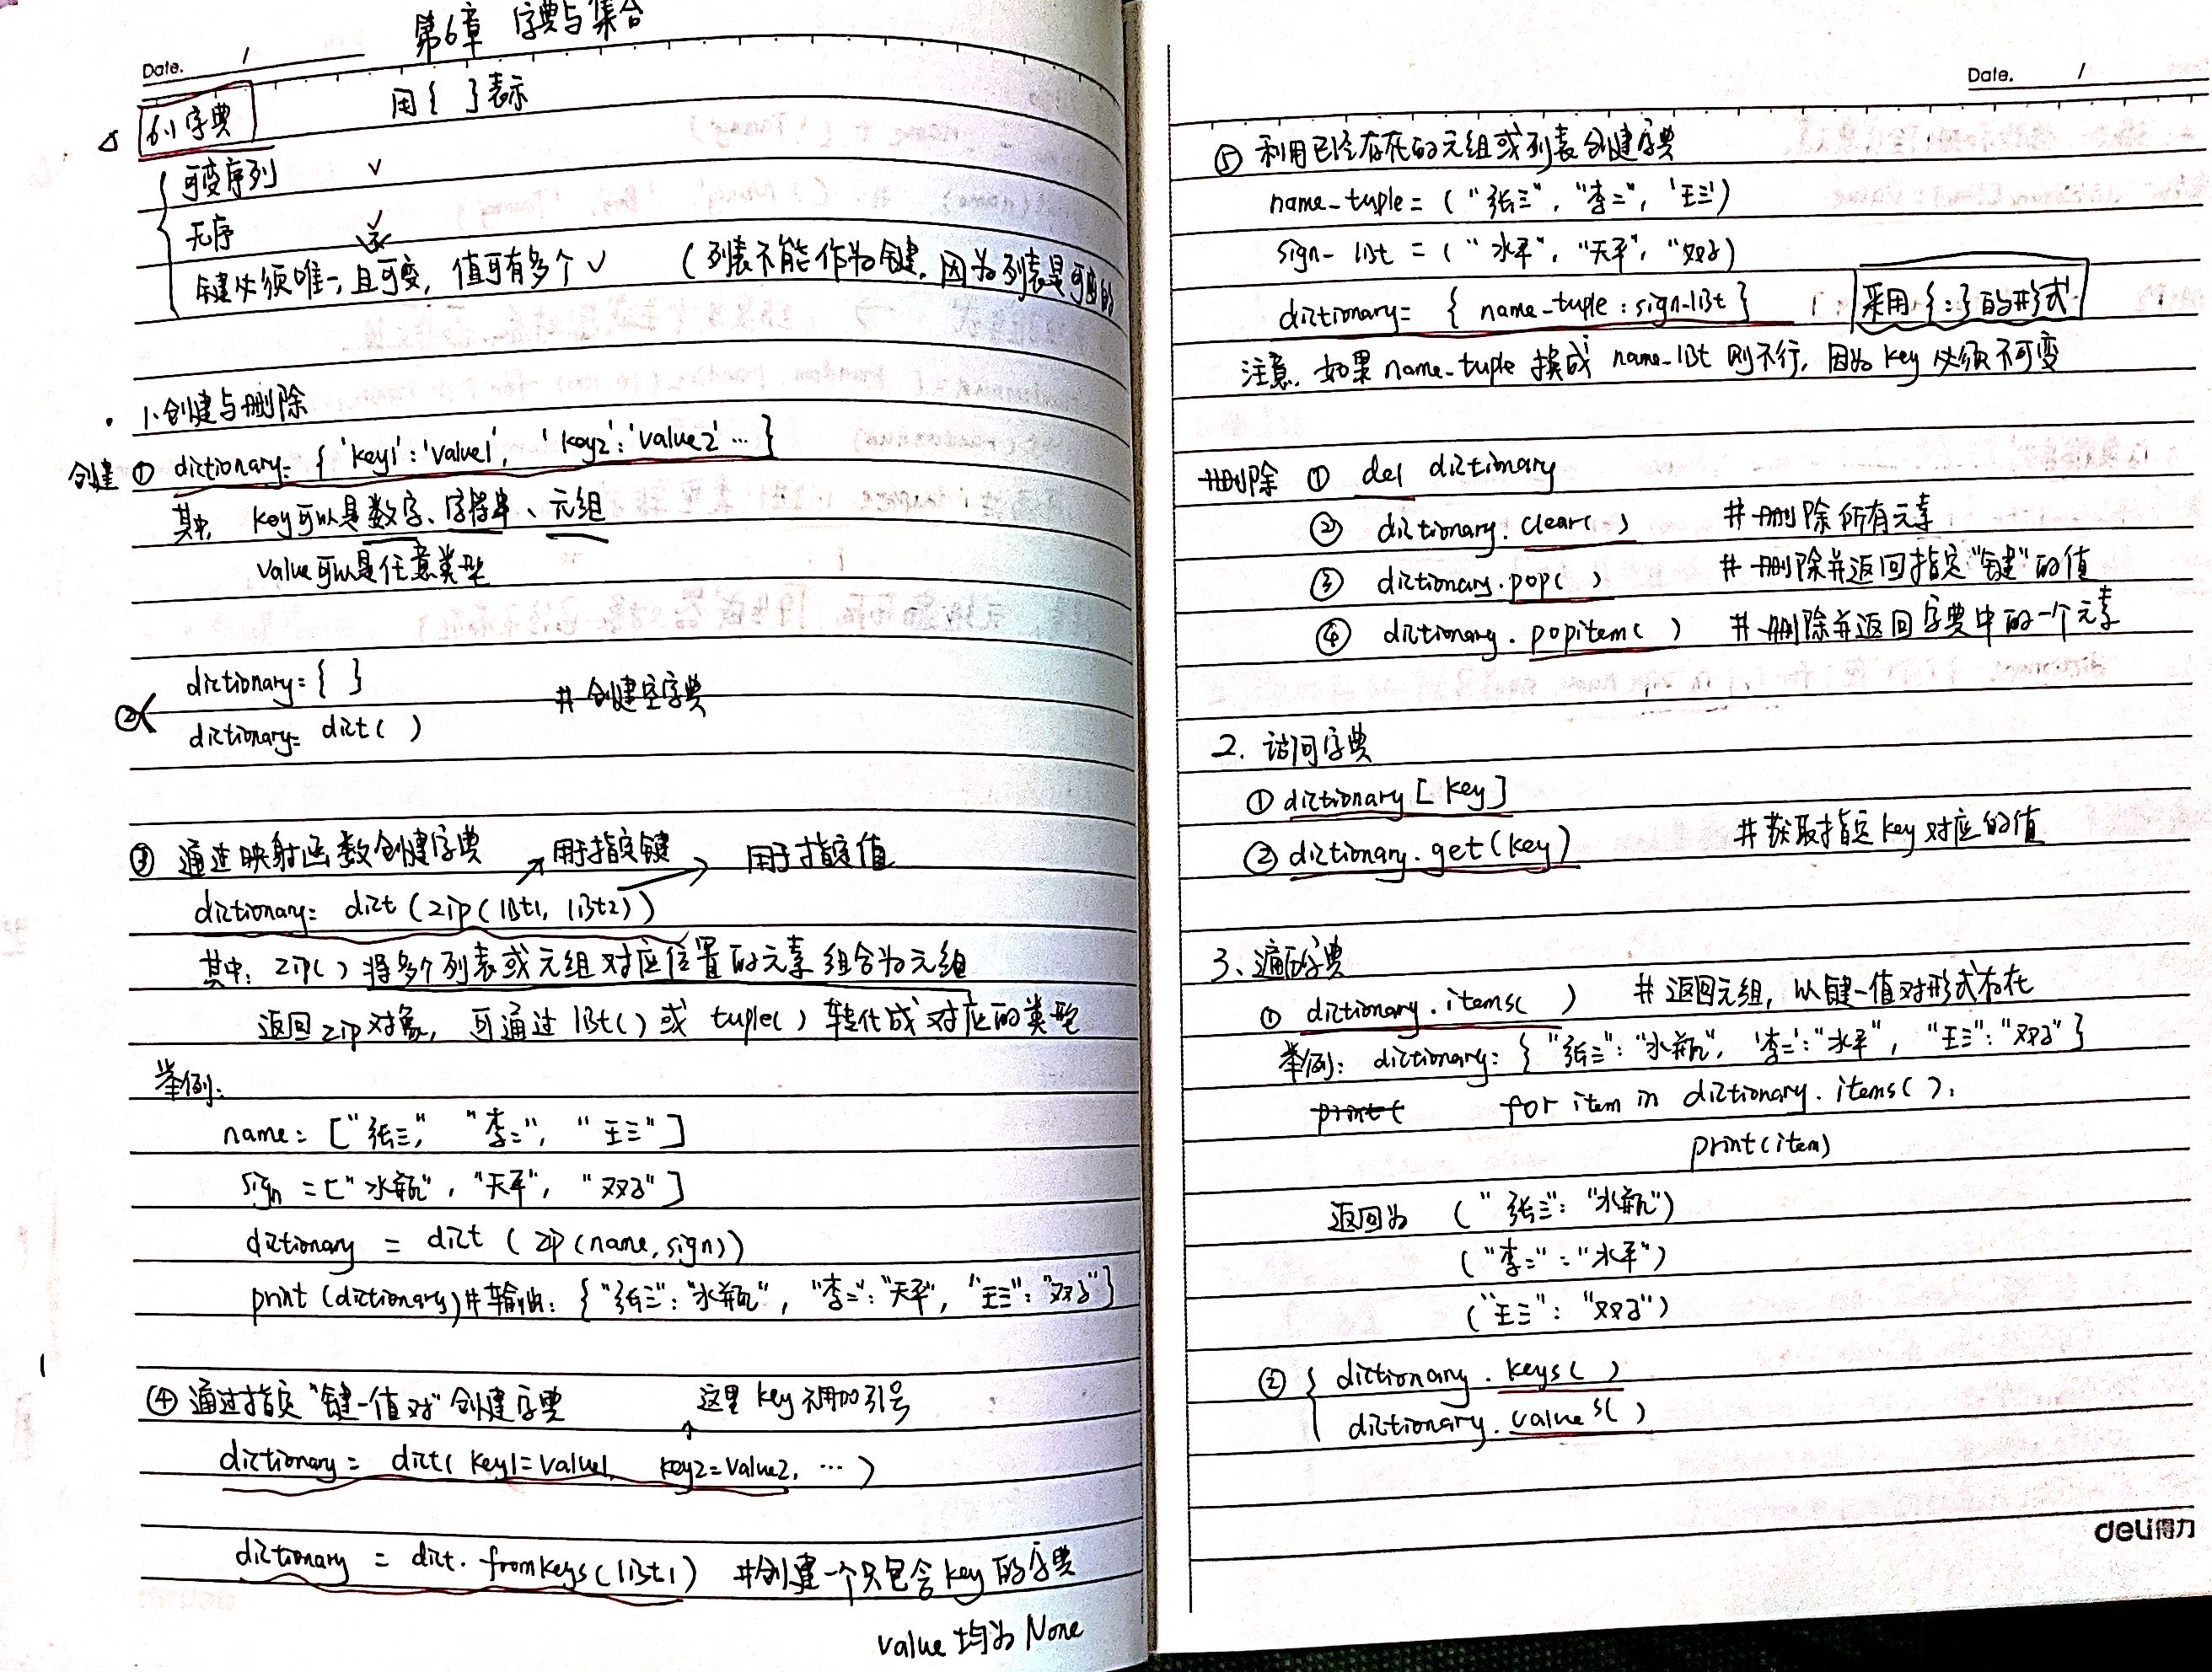 第6章 字典与集合
Date. /
6.1 字典 用{ }表示
可变序列 ✓
无序 ✓
键必须唯一,且可变,值可有多个 ✓ (列表不能作为键,因为列表是可变的
1.创建与删除
创建 ① dictionary= { 'key1':'value1', 'key2':'value2' … }
其中, key可以是数字、字符串、元组
value可以是任意类型
② dictionary= { }
dictionary= dict( )
# 创建空字典
③ 通过映射函数创建字典 用于指定键 用于指定值
dictionary= dict (zip(list1, list2))
其中: zip( ) 将多个列表或元组对应位置的元素组合为元组
返回zip对象, 可通过 list( ) 或 tuple( ) 转化成对应的类型
举例:
name= ["张三", "李二", "王三"]
sign =["水瓶", "天平", "双子"]
dictionary = dict (zip(name,sign))
print (dictionary)#输出: {"张三":"水瓶", "李二":"天平", "王三":"双子"}
④ 通过指定"键-值对"创建字典 这里 key 不用加引号
dictionary = dict( key1=value1, key2=value2, … )
dictionary = dict. fromkeys(list1) #创建一个只包含key的字典
value均为None
Date. /
⑤ 利用已经存在的元组或列表创建字典
name_tuple= ("张三", "李二", '王三')
sign_list = ("水平", "天平", "双子)
dictionary= { name_tuple : sign_list } 采用{:}的形式
注意. 如果 name_tuple 换成 name_list 则不行, 因为 key 必须不可变
删除 ① del dictionary
② dictionary. clear( ) # 删除所有元素
③ dictionary.pop( ) # 删除并返回指定"键"的值
④ dictionary. popitem( ) # 删除并返回字典中的一个元素
2. 访问字典
① dictionary [ key]
② dictionary. get (key) # 获取指定key对应的值
3、遍历字典
① dictionary. items( ) # 返回元组, 以键-值对形式存在
举例: dictionary= { "张三":"水瓶", '李二':"水平", "王三":"双子" }
print( for item in dictionary. items( ):
print(item)
返回为 ("张三": "水瓶")
("李二": "水平")
("王三": "双子")
② dictionary. keys( )
dictionary. values( )
deli得力